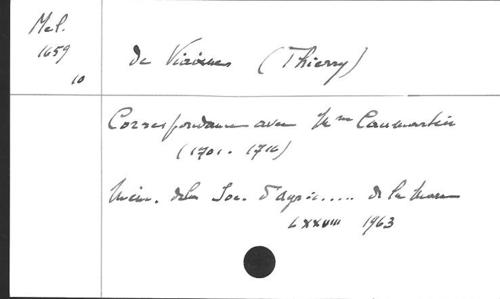 Mel.
1659
10
de Vizième (Thierry)
Correspondance avec Mme Caumartin
(1701 - 1716)
Mém. de la Soc. d'agric..... de la Marne
LXXVIII 1963